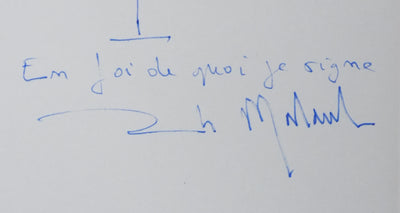 En foi de quoi je signe